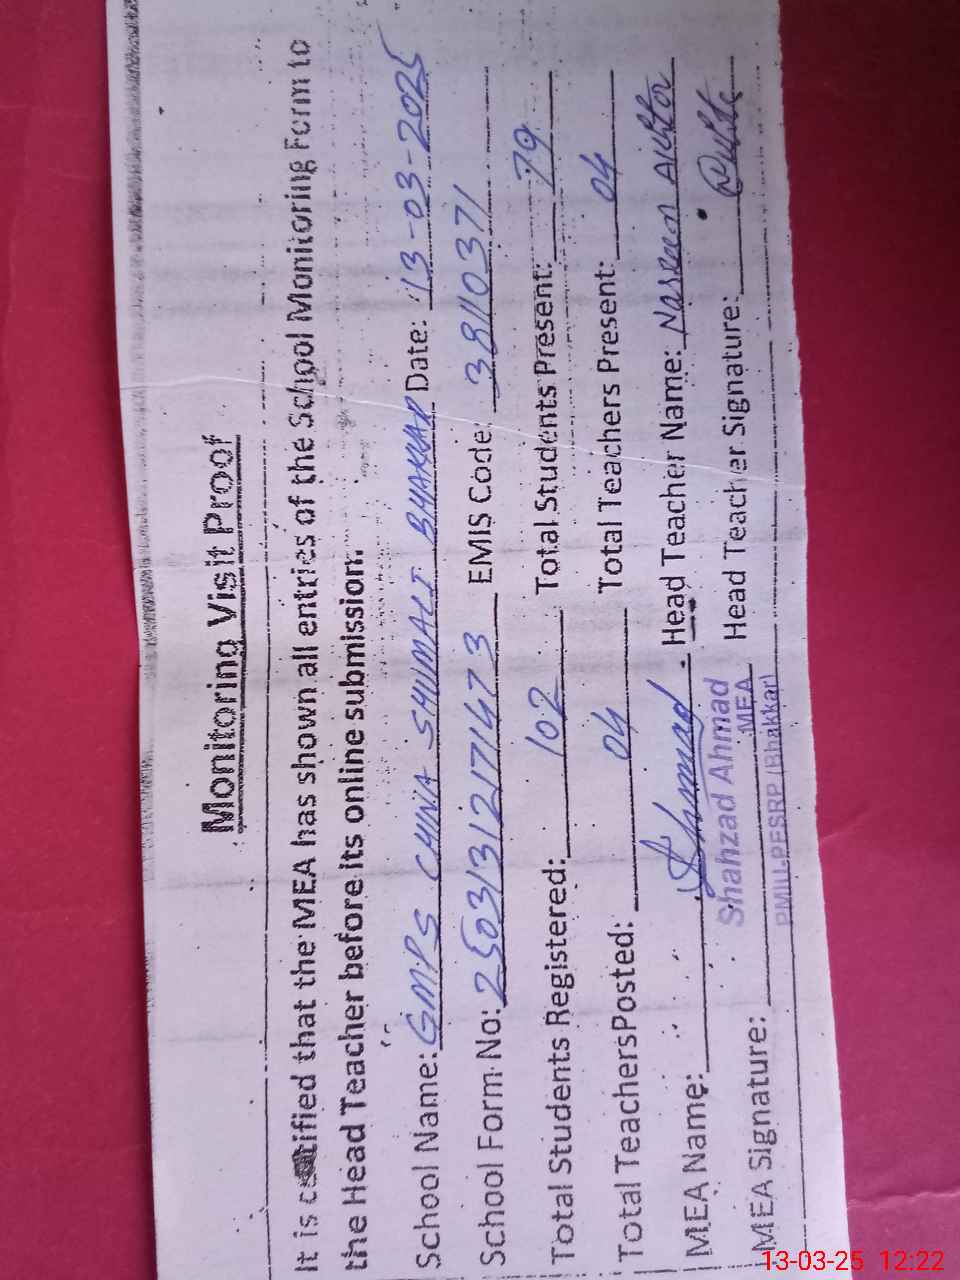 Monitoring Visit Proof
It is certified that the MEA has shown all entries of the School Monitoring Form to
the Head Teacher before its online submission.
School Name: GMPS CHINA SHUMALI BHAKKAR Date: 13-03-2025
School Form No: 2503131217147 3 EMIS Code: 38110371
Total Students Registered: 102 Total Students Present: 79
Total Teachers Posted: 04 Total Teachers Present: 04
MEA Name: Head Teacher Name: Nasreen Akhtar
Shahzad Ahmad
MEA
PMIU-PESRP (Bhakkar)
MEA Signature: Head Teacher Signature:
13-03-25 12:22